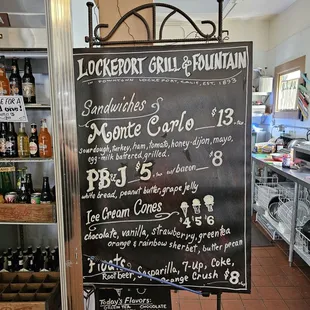 LOCKEPORT GRILL & FOUNTAIN
DOWNTOWN LOCKE PORT, CALIF., EST. 1893
Sandwiches
Monte Carlo $13.
sourdough, turkey, ham, tomato, honey-dijon, mayo,
egg-milk battered, grilled.
PB&J $5. w/ bacon $8
white bread, peanut butter, grape jelly
Ice Cream Cones $4 $5 $6
chocolate, vanilla, strawberry, green tea
orange & rainbow sherbet, butter pecan
Floats
Root beer, Sasparilla, 7-Up, Coke,
Orange Crush $8.
TODAY'S FLAVORS:
GREEN TEA CHOCOLATE
FOR A
one!